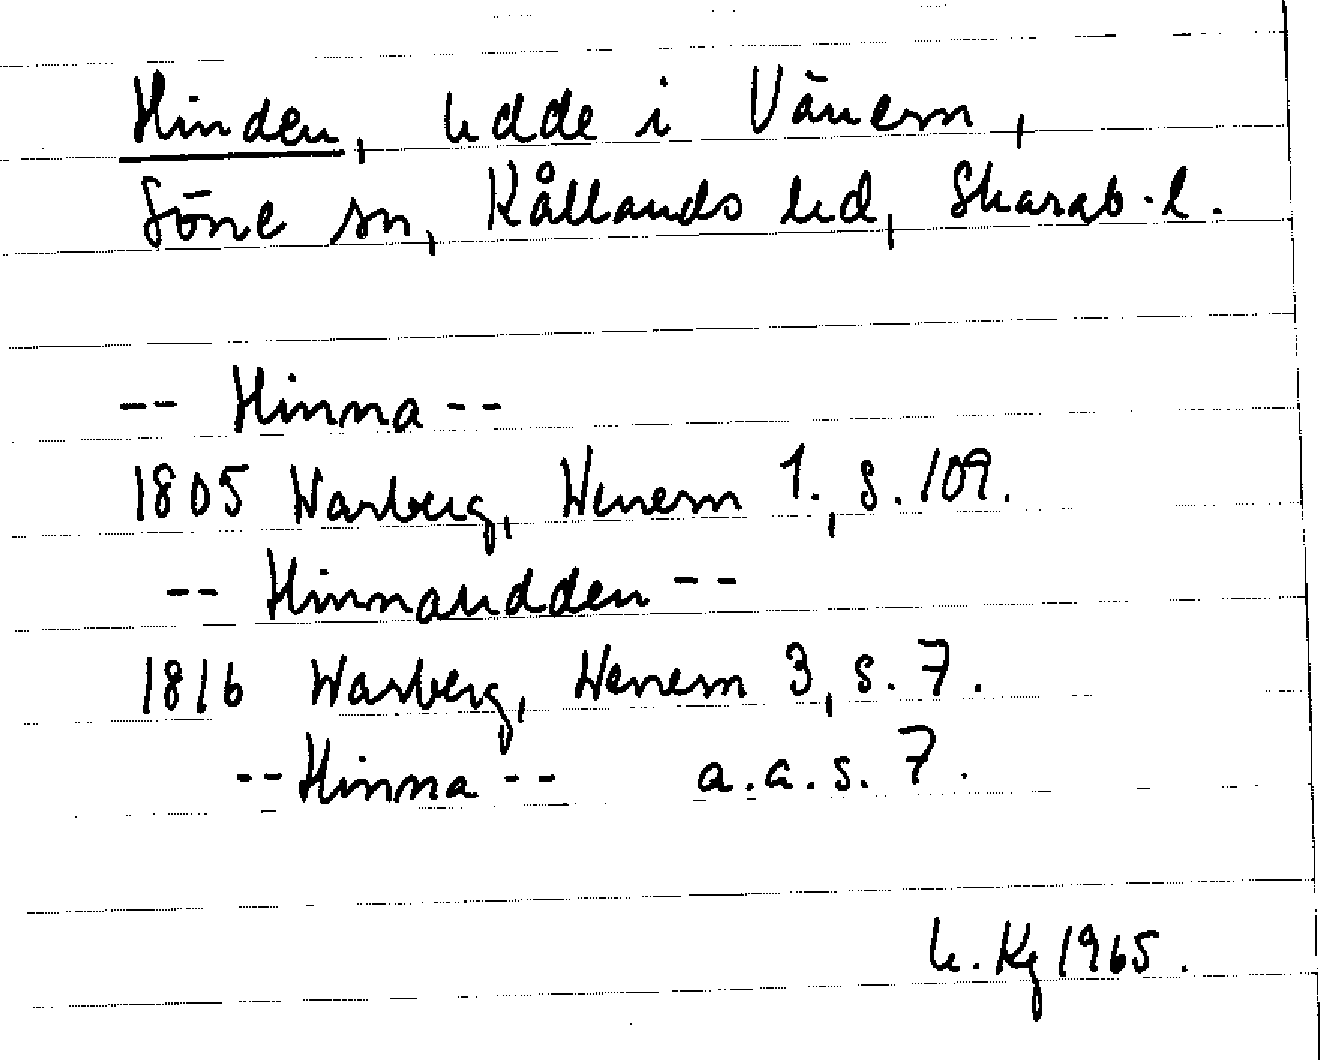 Hinden, Udde i Vänern,
Söne sn, Kållands hd, Skarab.l.
-- Hinna --
1805 Warberg, Wenern 1., s. 109.
-- Hinnaudden --
1816 Warberg, Wenern 3, s. 7.
-- Hinna -- a.a.s. 7.
U. Kg 1965.